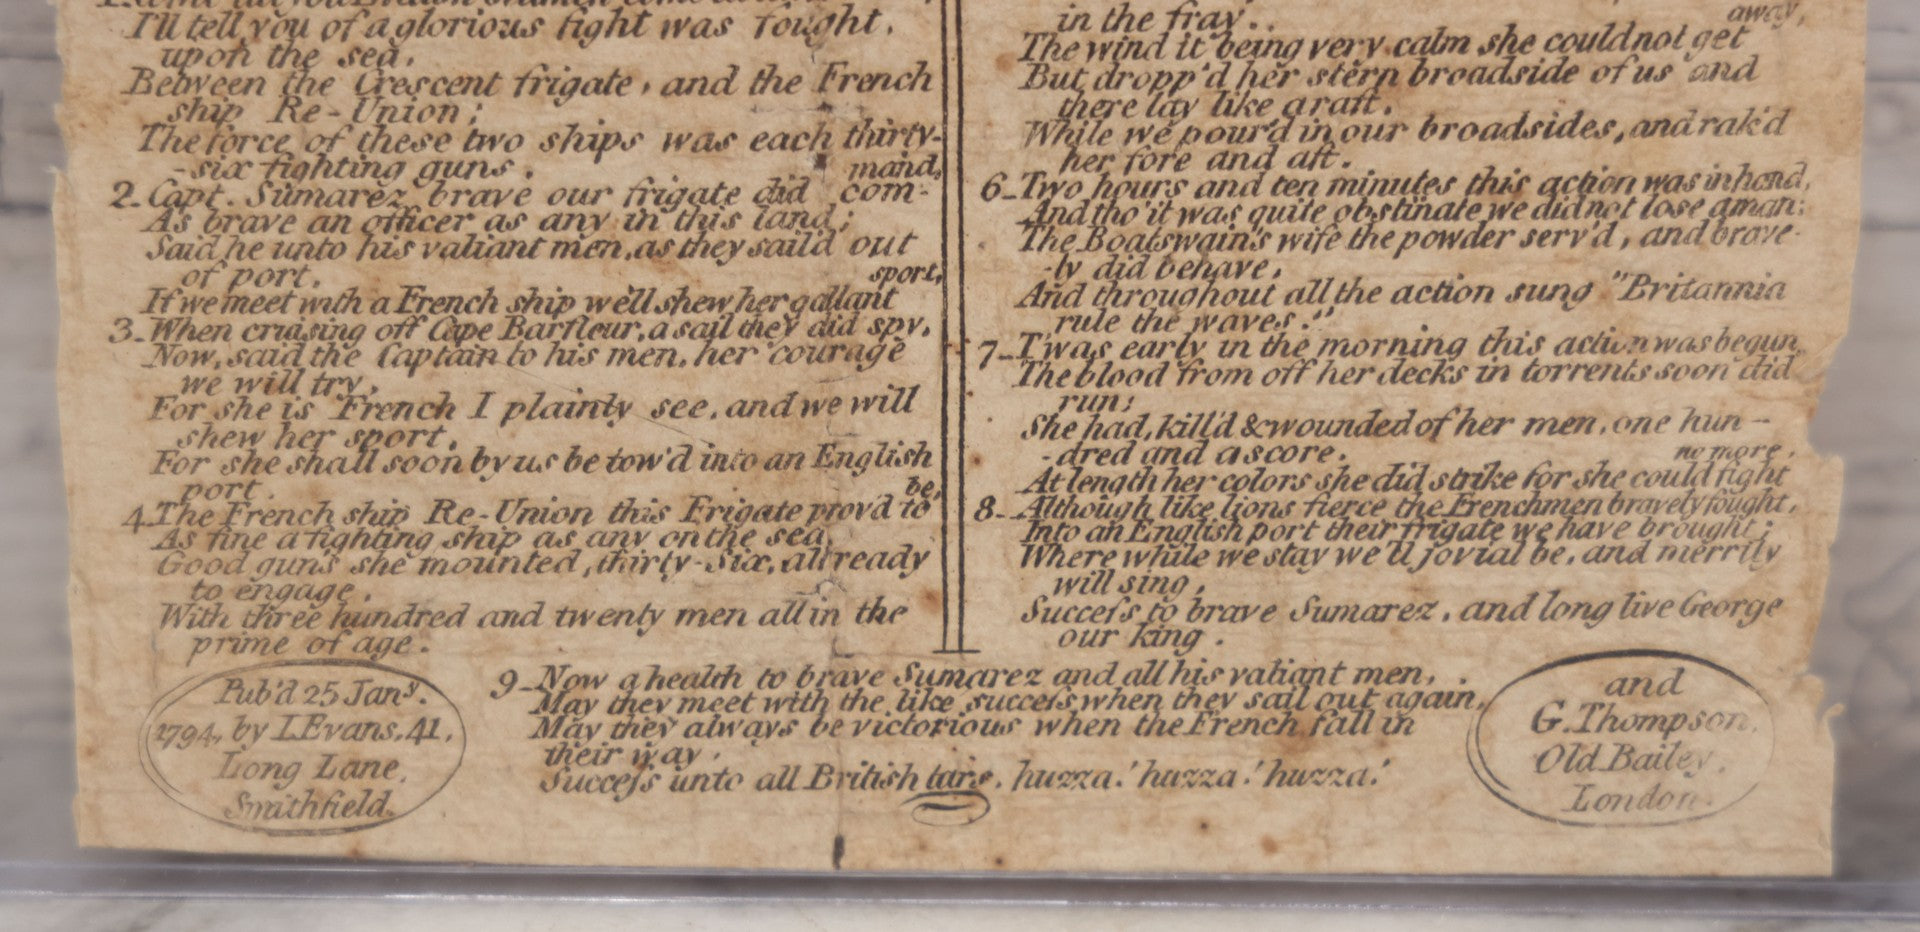 I'll tell you of a glorious fight was fought,
upon the sea,
Between the Crescent frigate, and the French
ship Re-Union;
The force of these two ships was each thirty-
-six fighting guns.
mand,
2_Capt. Sumarez brave our frigate did com-
As brave an officer as any in this land;
Said he unto his valiant men, as they sail'd out
of port,
sport,
If we meet with a French ship we'll shew her gallant
3_When cruising off Cape Barfleur, a sail they did spy,
Now, said the Captain to his men, her courage
we will try,
For she is French I plainly see, and we will
shew her sport,
For she shall soon by us be tow'd into an English
port.
be,
4_The French ship Re-Union this Frigate prov'd to
As fine a fighting ship as any on the sea,
Good guns she mounted, thirty-six, all ready
to engage,
With three hundred and twenty men all in the
prime of age.
in the fray..
away,
The wind it being very calm she could not get
But dropp'd her stern broadside of us and
there lay like a raft.
While we pour'd in our broadsides, and rak'd
her fore and aft.
6_Two hours and ten minutes this action was in hand,
And tho' it was quite obstinate we did not lose a man:
The Boatswain's wife the powder serv'd, and brave-
-ly did behave,
And throughout all the action sung "Britannia
rule the waves."
7_T'was early in the morning this action was begun,
The blood from off her decks in torrents soon did
run;
She had, kill'd & wounded of her men, one hun-
-dred and a score.
no more,
At length her colors she did strike for she could fight
8_Although like lions fierce the Frenchmen bravely fought,
Into an English port their frigate we have brought;
Where while we stay we'll jovial be, and merrily
will sing,
Succeſs to brave Sumarez, and long live George
our king.
9_Now a health to brave Sumarez and all his valiant men,
May they meet with the like succeſs when they sail out again,
May they always be victorious when the French fall in
their way.
Succeſs unto all British tars, huzza! huzza! huzza!
Pub'd 25 Jany.
1794, by I. Evans, 41,
Long Lane,
Smithfield.
and
G. Thompson,
Old Bailey,
London.